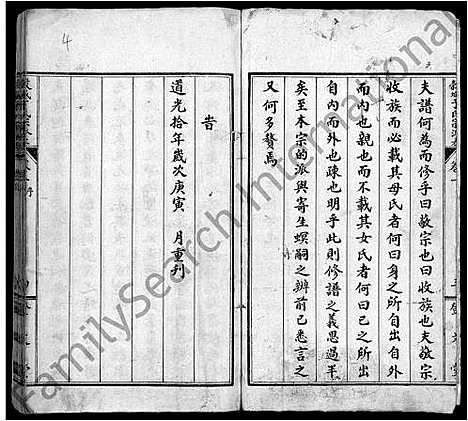 夫譜何為而修乎曰敬宗也曰收族也夫敬宗
收族而必載其母氏者何曰身之所自出自外
而內也親也而不載其女氏者何曰己之所出
自內而外也疎也明乎此則修譜之義思過半
矣至本宗的派與寄生螟嗣之辨前已悉言之
又何多贅焉
旹
道光拾年歲次庚寅 月重刊
4
FamilySearch International